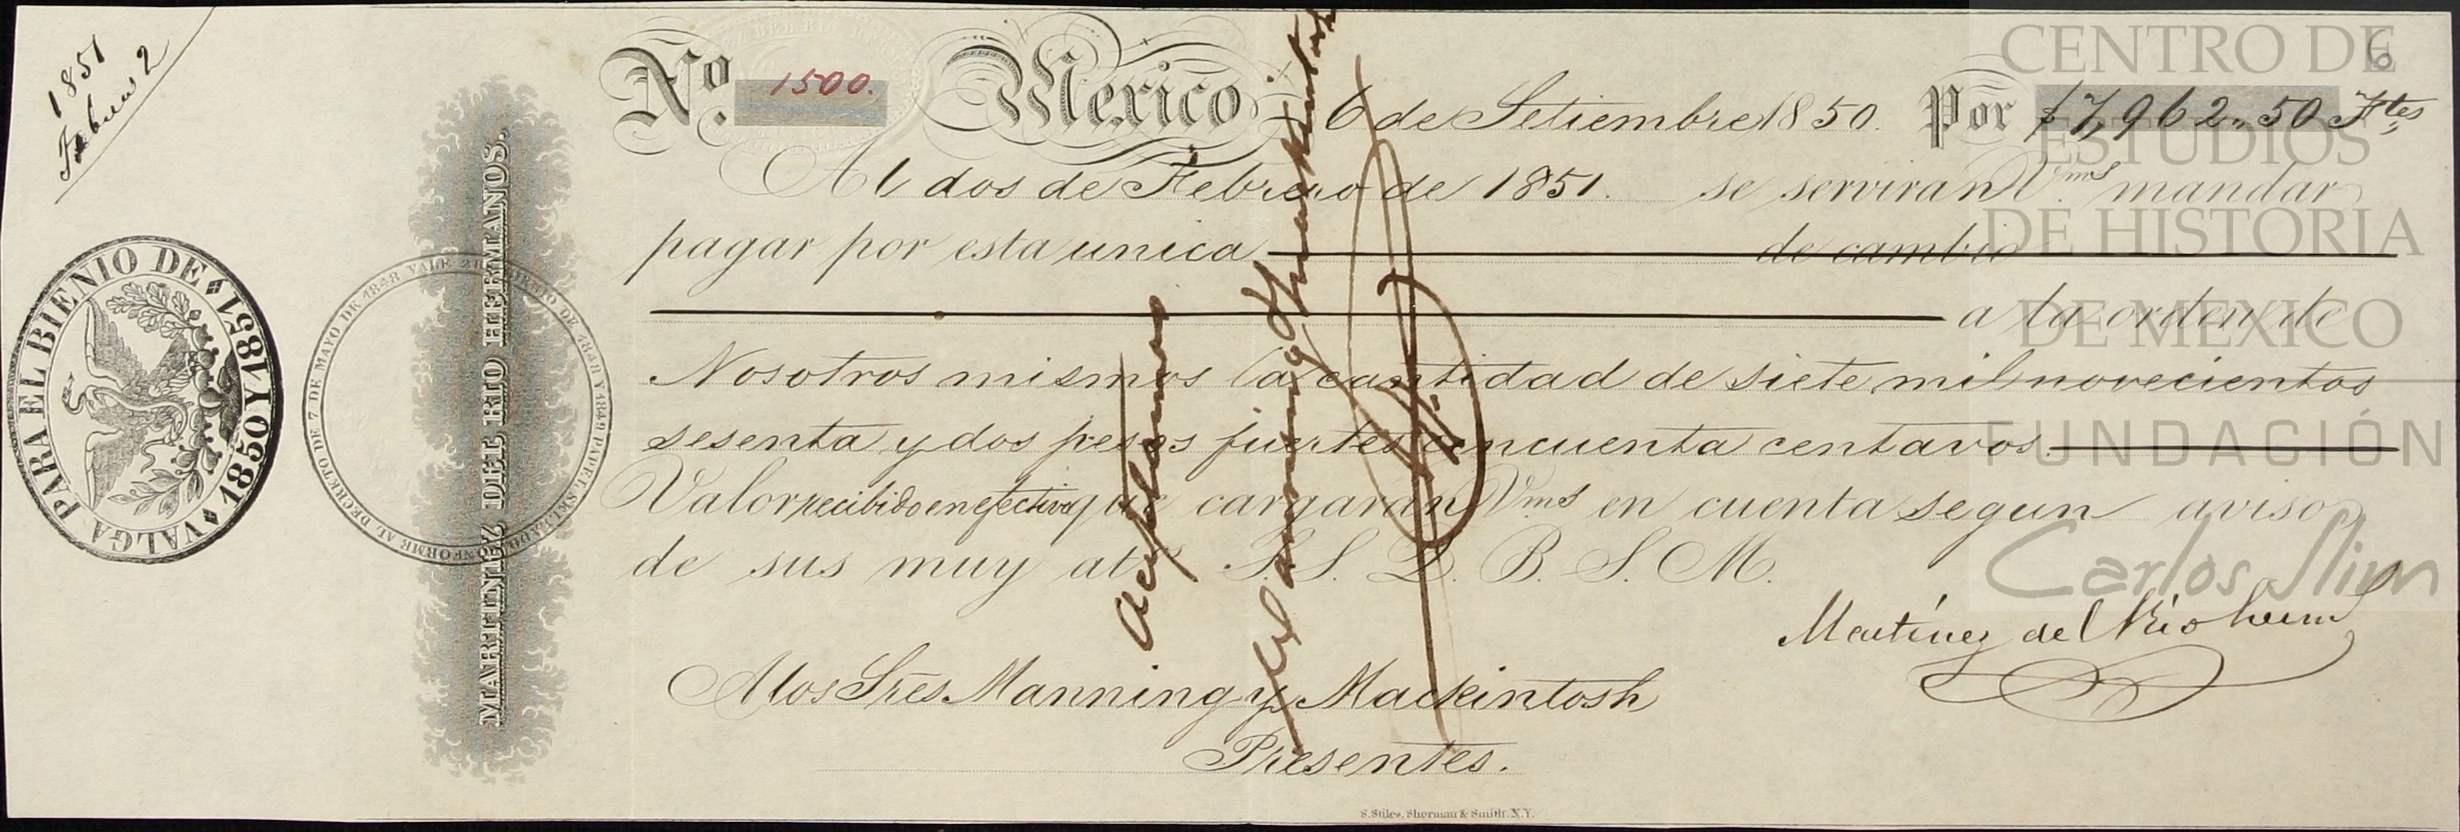 1851
Febrero 2
No. 1500. Mexico 6 de Setiembre 1850. Por $7,962,,50 Ftes
6
Al dos de Febrero de 1851. se serviran Vms mandar
pagar por esta unica de cambio
a la orden de
Nosotros mismos la cantidad de siete mil novecientos
sesenta y dos pesos fuertes cincuenta centavos.
Valor recibido en efectivo que cargaran Vms en cuenta segun aviso
de sus muy ats S. S. Q. B. S. M.
Martinez del Rio herms
A los Sres. Manning y Mackintosh
Presentes.
Aceptamos
Manning y Mackintosh
MARTINEZ DEL RIO HERMANOS.
VALGA PARA EL BIENIO DE 1850 Y 1851
VALE 2 EL BIENIO DE 1848 Y 1849 PAPEL SELLADO CONFORME AL DECRETO DE 7 DE MAYO DE 1848
S. Stiles, Sherman & Smith. N.Y.
CENTRO DE
ESTUDIOS
DE HISTORIA
DE MEXICO
FUNDACIÓN
Carlos Slim